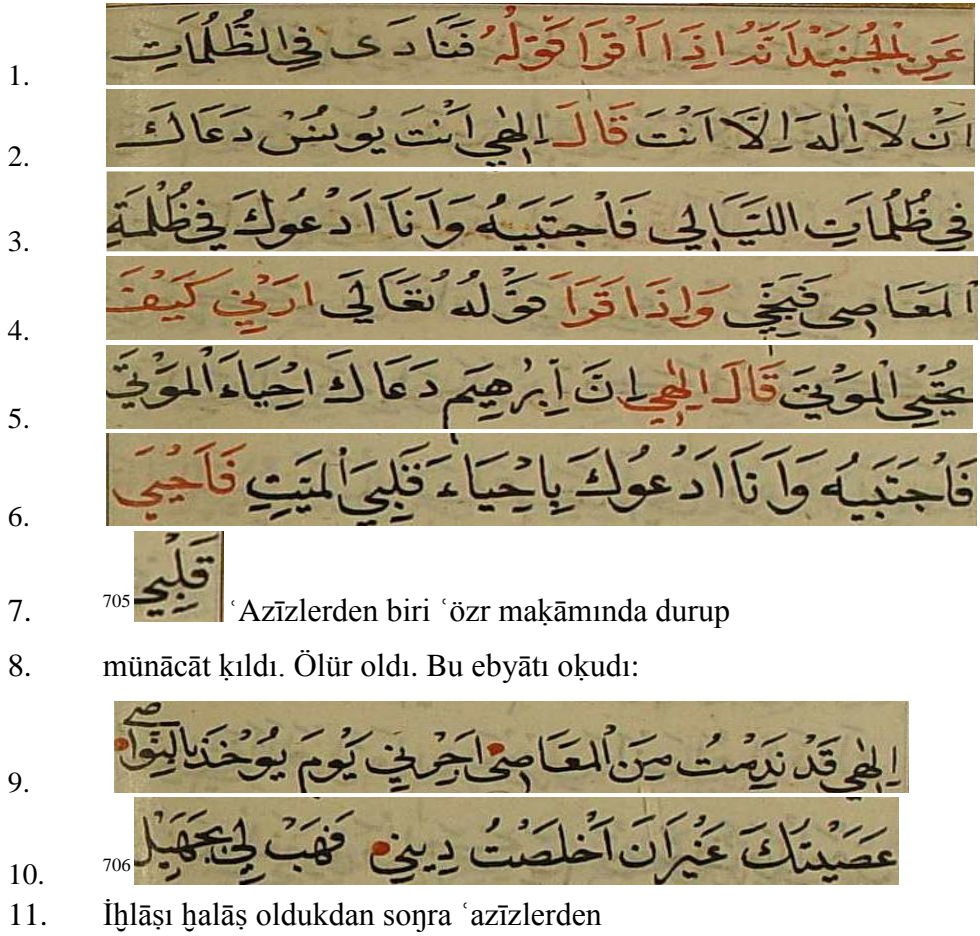 1. عَنِ الْجُنَيْدِ اَنَّهُ اِذَا اَقْرَا قَوْلُهُ فَنَادَى فِي الظُّلُمَاتِ
2. اَنْ لَا اِلَهَ اِلَّا اَنْتَ قَالَ اِلٰهِي اَنْتَ يُونُسْ دَعَاكَ
3. فِي ظُلُمَاتِ اللَّيَالِي فَاَجَتَبِيهُ وَاَنَا اَدْعُوكَ فِي ظُلْمَةِ
4. اَلْمَعَاصِى فَنَجِّي وَاِذَا قَرَاَ قَوْلُهُ تَعَالَي اَرِنِي كَيْفَ
5. تُحْيِي الْمَوْتَي قَالَ اِلٰهِي اِنَّ اِبْرٰهِيم دَعَاكَ اِحْيَاءَ الْمَوْتَي
6. فَاَجَتَبِيهُ وَاَنَا اَدْعُوكَ بِاِحْيَاءِ قَلْبِيَ الْمَيِّتِ فَاَحْيِي
7. قَلْبِي 705 ʿAzīzlerden biri ʿöẕr maḳāmında durup
8. münācāt ḳıldı. Ölür oldı. Bu ebyātı oḳudı:
9. اِلٰهِي قَدْ نَدِمْتُ مِنَ الْمَعَاصِى اَجِرْنِي يَوْمَ يُوْخَذُ بِالنَّوَاصِي
10. عَصَيْتُكَ غَيْرَ اَنْ اَخْلَصْتُ دِينِي فَهَبْ لِي 706
11. İḫlāṣı ḫalāṣ oldukdan soŋra ʿazīzlerden